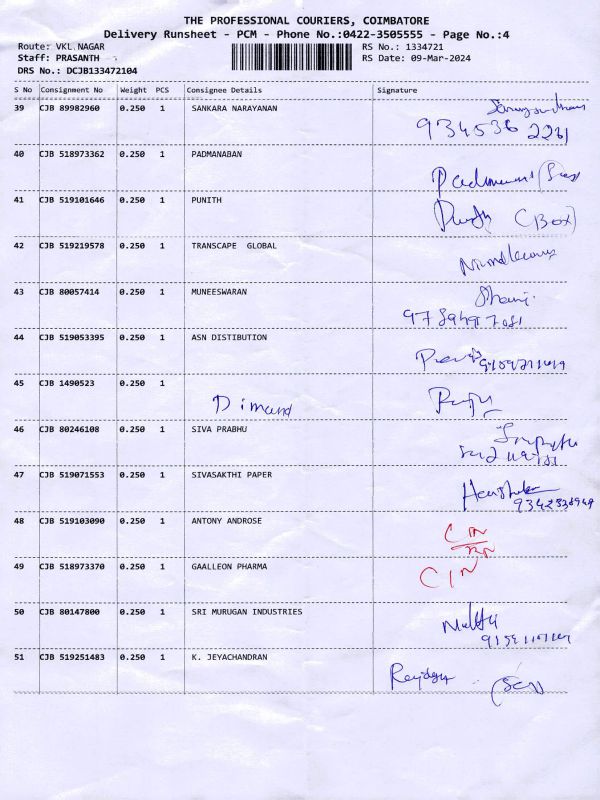 THE PROFESSIONAL COURIERS, COIMBATORE
Delivery Runsheet - PCM - Phone No.:0422-3505555 - Page No.:4
Route: VKL.NAGAR RS No.: 1334721
Staff: PRASANTH RS Date: 09-Mar-2024
DRS No.: DCJB133472104
S No Consignment No Weight PCS Consignee Details Signature
39 CJB 89982960 0.250 1 SANKARA NARAYANAN
934536 2261
40 CJB 518973362 0.250 1 PADMANABAN
41 CJB 519101646 0.250 1 PUNITH
(Box)
42 CJB 519219578 0.250 1 TRANSCAPE GLOBAL
43 CJB 80057414 0.250 1 MUNEESWARAN
44 CJB 519053395 0.250 1 ASN DISTIBUTION
45 CJB 1490523 0.250 1
Dimand
46 CJB 80246108 0.250 1 SIVA PRABHU
47 CJB 519071553 0.250 1 SIVASAKTHI PAPER
48 CJB 519103090 0.250 1 ANTONY ANDROSE
49 CJB 518973370 0.250 1 GAALLEON PHARMA
CIN
50 CJB 80147800 0.250 1 SRI MURUGAN INDUSTRIES
51 CJB 519251483 0.250 1 K. JEYACHANDRAN